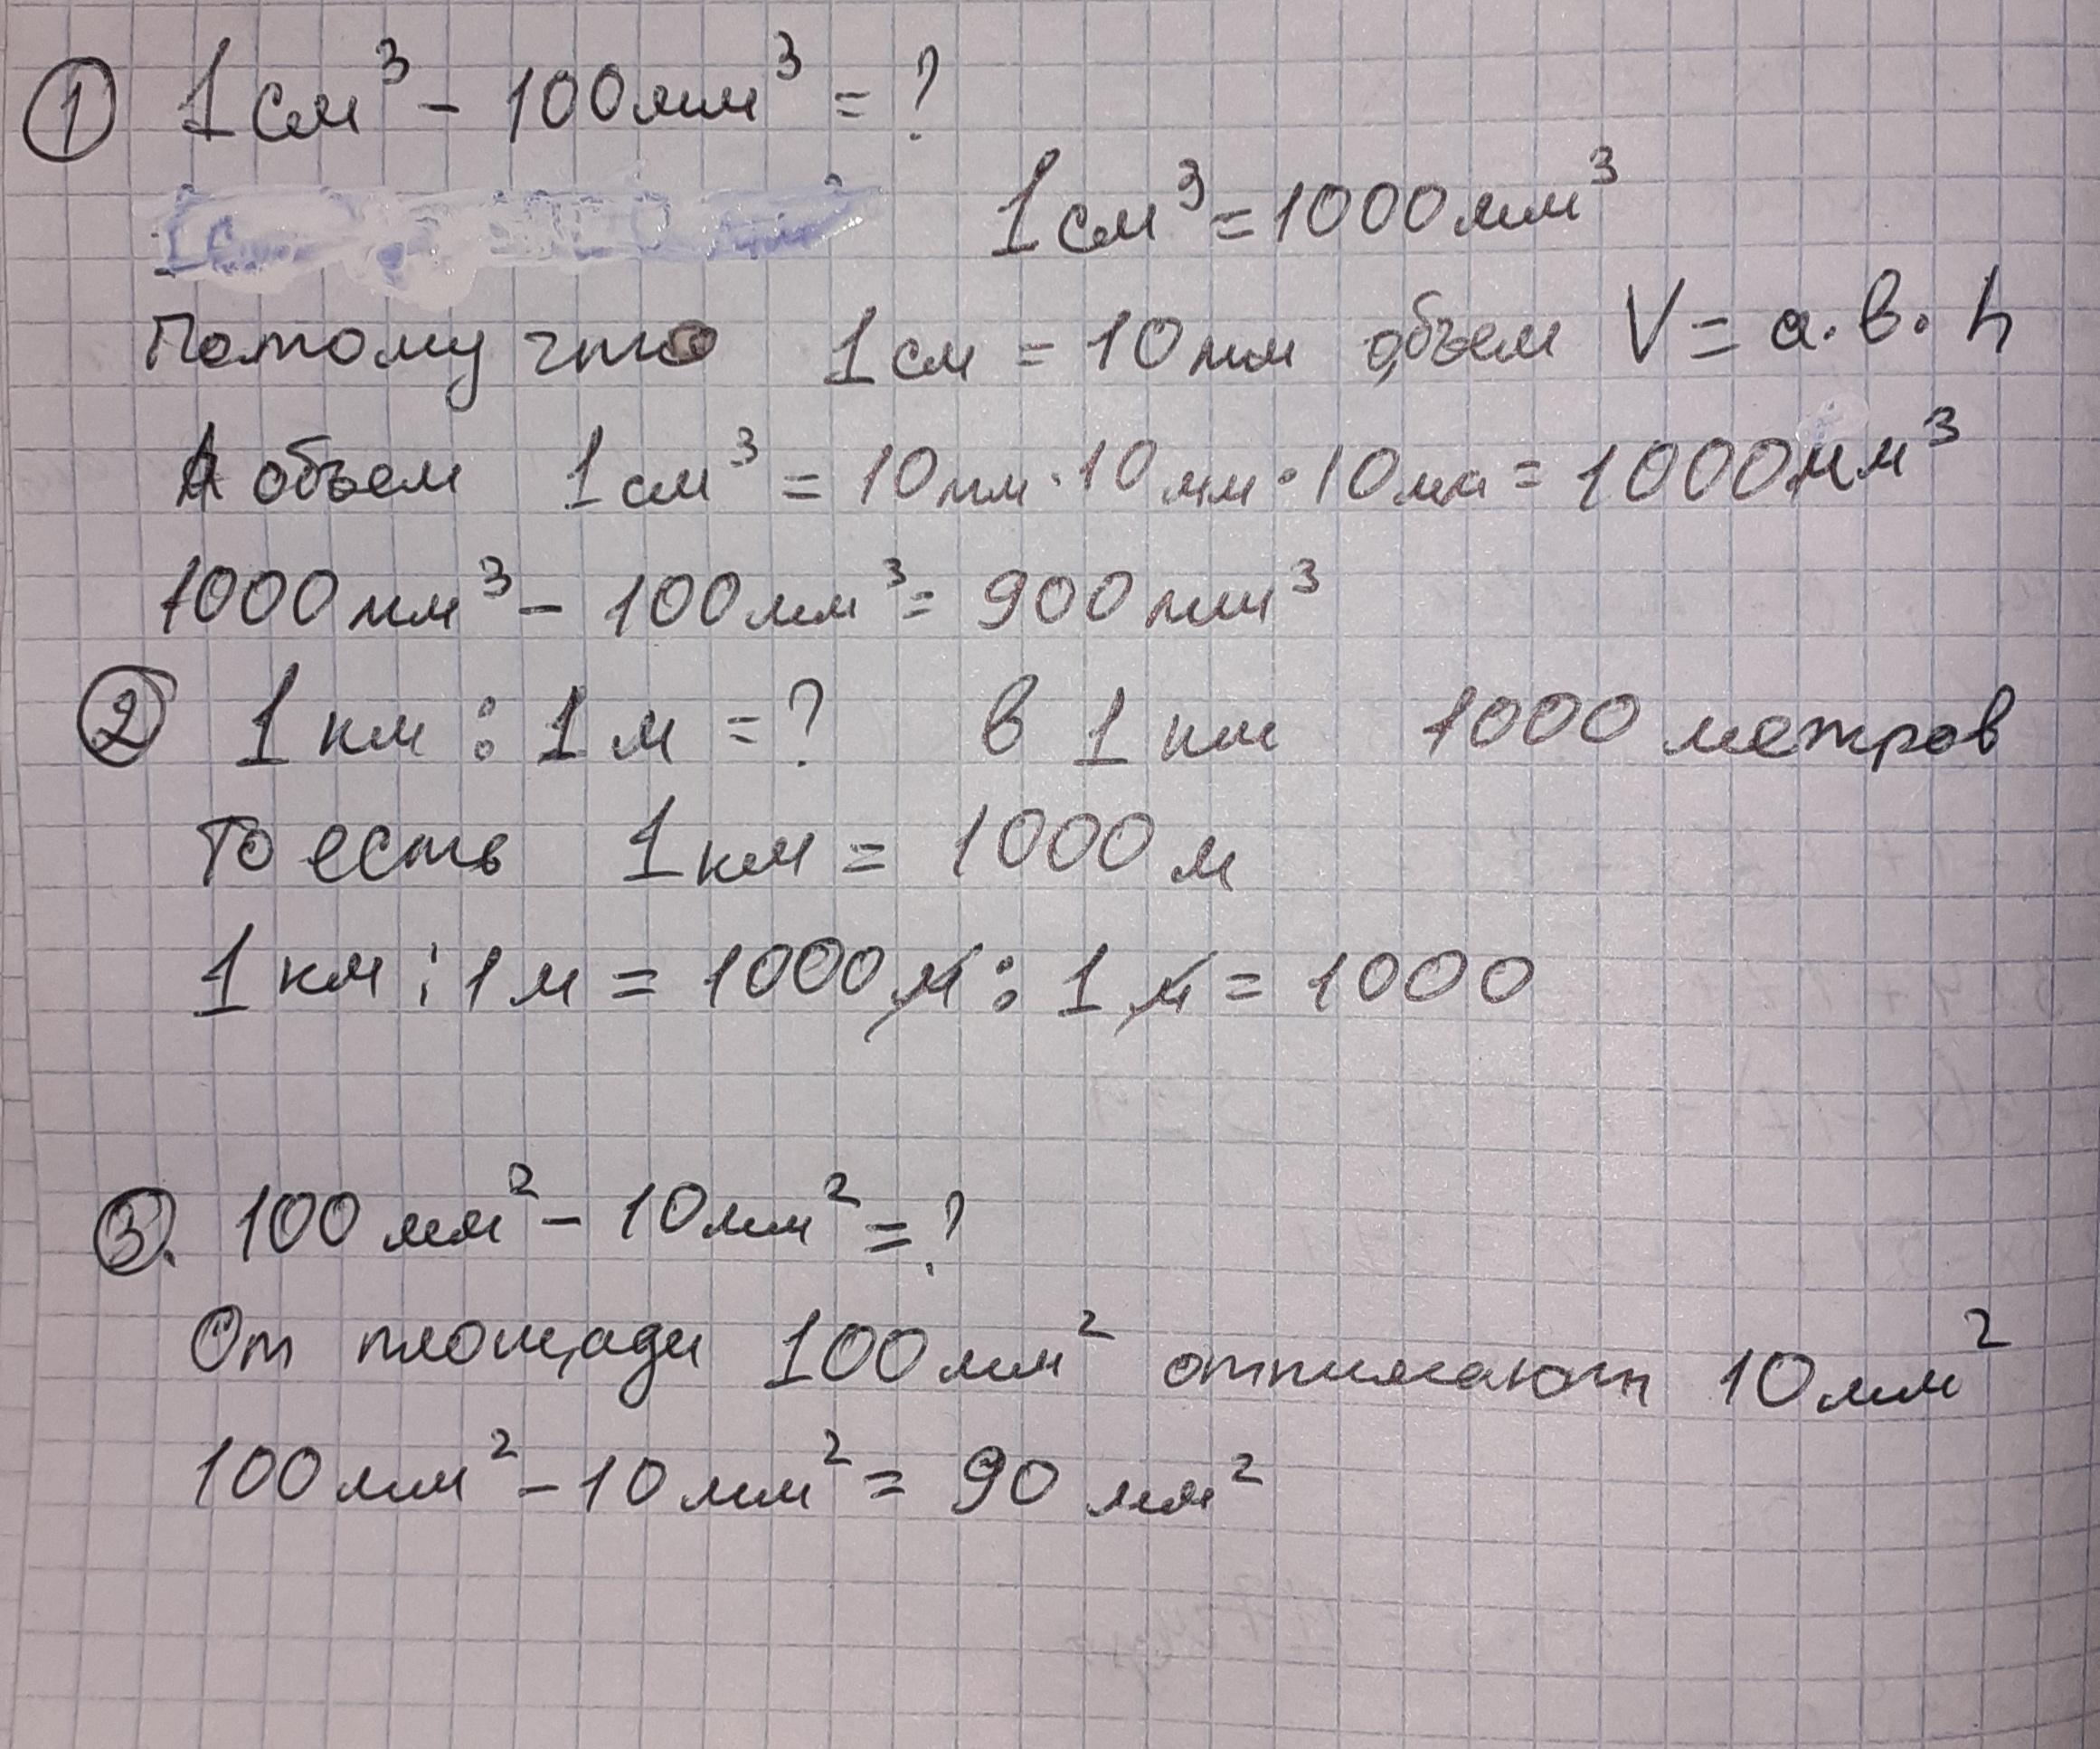 ① 1 см³ - 100 мм³ = ?
1 см³ = 1000 мм³
Потому что 1 см = 10 мм объем V = а · в · h
А объем 1 см³ = 10 мм · 10 мм · 10 мм = 1000 мм³
1000 мм³ - 100 мм³ = 900 мм³
② 1 км : 1 м = ? в 1 км 1000 метров
То есть 1 км = 1000 м
1 км : 1 м = 1000 м : 1 м = 1000
③. 100 мм² - 10 мм² = ?
От площади 100 мм² отнимают 10 мм²
100 мм² - 10 мм² = 90 мм²